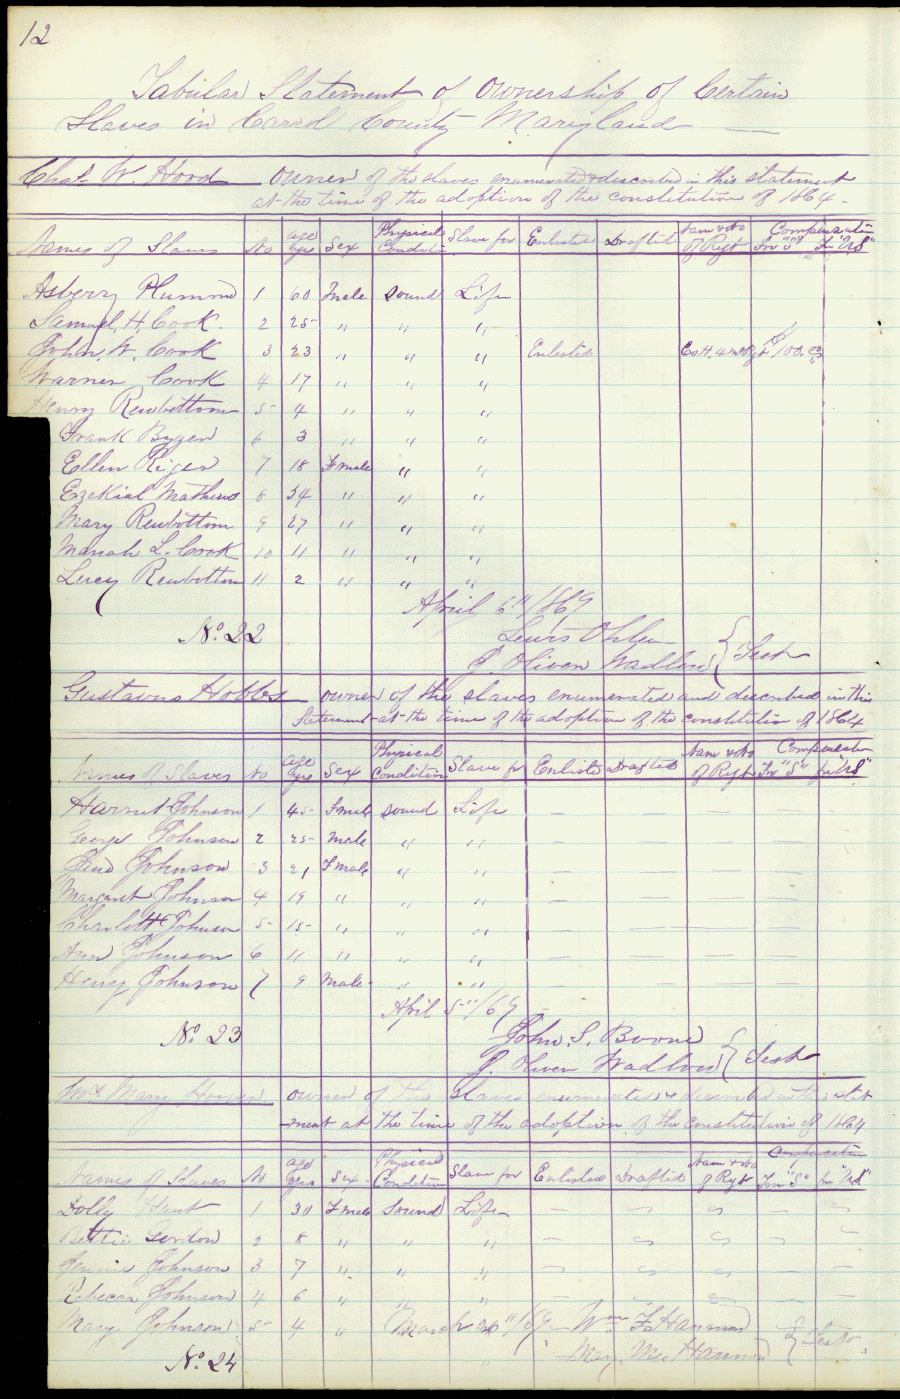 12
Tabular Statement of Ownership of Certain
Slaves in Carrol County Maryland
Chas. W. Hood owner of the slaves enumerated & described in this statement
at the time of the adoption of the constitution of 1864.
Names of Slaves No age yrs Sex Physical Condition Slave for Enlisted Drafted Nam & No of Rgt Compensation For "S" For "US"
Asberry Plummer 1 60 Male Sound Life
Samuel H. Cook. 2 25 " " "
John W. Cook 3 23 " " " Enlisted Co H. 4 Rgt $100.00
Warner Cook 4 17 " " "
Henry Rewbottom 5 4 " " "
Frank 6 3 " " "
Ellen 7 18 Fmale " "
Ezekial Mathews 8 34 " " "
Mary Rewbottom 9 27 " " "
L. Cook 10 11 " " "
Lucy Rewbottom 11 2 " " "
April 6"/1869
No. 22 Lewis
J. Oliver Wadlow } Test
Gustavus Hobbs owner of the slaves enumerated and described in this
Statement at the time of the adoption of the constitution of 1864
Names of Slaves No age yrs Sex Physical Condition Slave for Enlistd Drafted Nam & No of Rgt Compensation For "S" for "US"
Harriet Johnson 1 45 Fmale Sound Life — — — — —
George Johnson 2 25 Male " " — — — — —
Johnson 3 21 Fmale " " — — — — —
Margaret Johnson 4 19 " " " — — — — —
Johnson 5 15 " " " — — — —
Ann Johnson 6 11 " " " — — — — —
Henry Johnson 7 9 Male " " — — — — —
April 5"/69
No. 23 John. S. Boone
J. Oliver Wadlow } Test
Mrs Mary Hoover owner of the slaves enumerated & described in this stat
-ment at the time of the adoption of the constitution of 1864
Names of Slaves No age yrs Sex Physical Condition Slave for Enlisted Drafted Nam & No of Rgt Compensation For "S" for "US"
Dolly Hunt 1 30 Fmale Sound Life — — — — —
Bettie 2 8 " " " — — — — —
Jennie Johnson 3 7 " " " — — — — —
Rebecca Johnson 4 6 " " " — — — — —
Mary Johnson 5 4 " March 30"/69 Wm F. Hammond
No. 24 " Mary. Mc. Hammond } Test